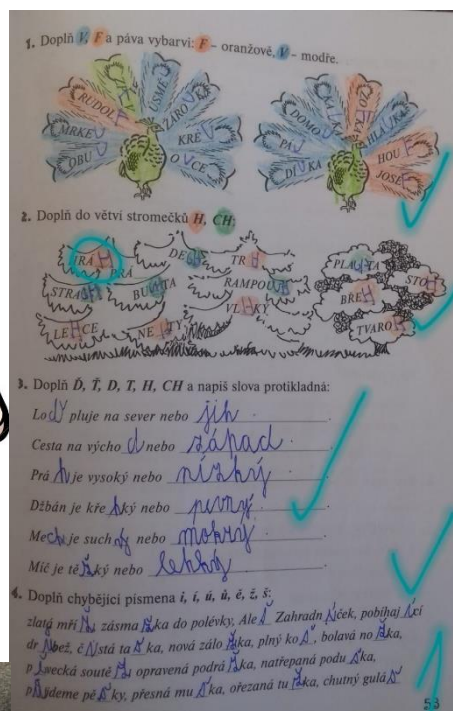 1. Doplň V, F a páva vybarvi: F – oranžově, V – modře.
RUDOLF
ÚSMĚV
ŽÁROV
MRKEV
KREV
OBUV
OVCE
KALFKA
DOMOV
PÁV
DÍVKA
HLAVKA
HOUF
JOSEF
2. Doplň do větví stromečků H, CH:
HRÁCH
DECH
TRH
PLACHTA
STOH
STRACH
BUCHTA
RAMPOUCH
BŘEH
LEHCE
NEHTY
VLHKÝ
TVAROH
3. Doplň Ď, Ť, D, T, H, CH a napiš slova protikladná:
Loď pluje na sever nebo jih.
Cesta na východ nebo západ.
Práh je vysoký nebo nízký.
Džbán je křehký nebo pevný.
Mech je suchý nebo mokrý.
Míč je těžký nebo lehký.
4. Doplň chybějící písmena i, í, ú, ů, ě, ž, š:
zlatá mříž, zásmažka do polévky, Aleš Zahradníček, pobíhající
drůbež, čistá taška, nová záložka, plný koš, bolavá nožka,
pěvecká soutěž, opravená podrážka, natřepaná poduška,
půjdeme pěšky, přesná muška, ořezaná tužka, chutný guláš
53